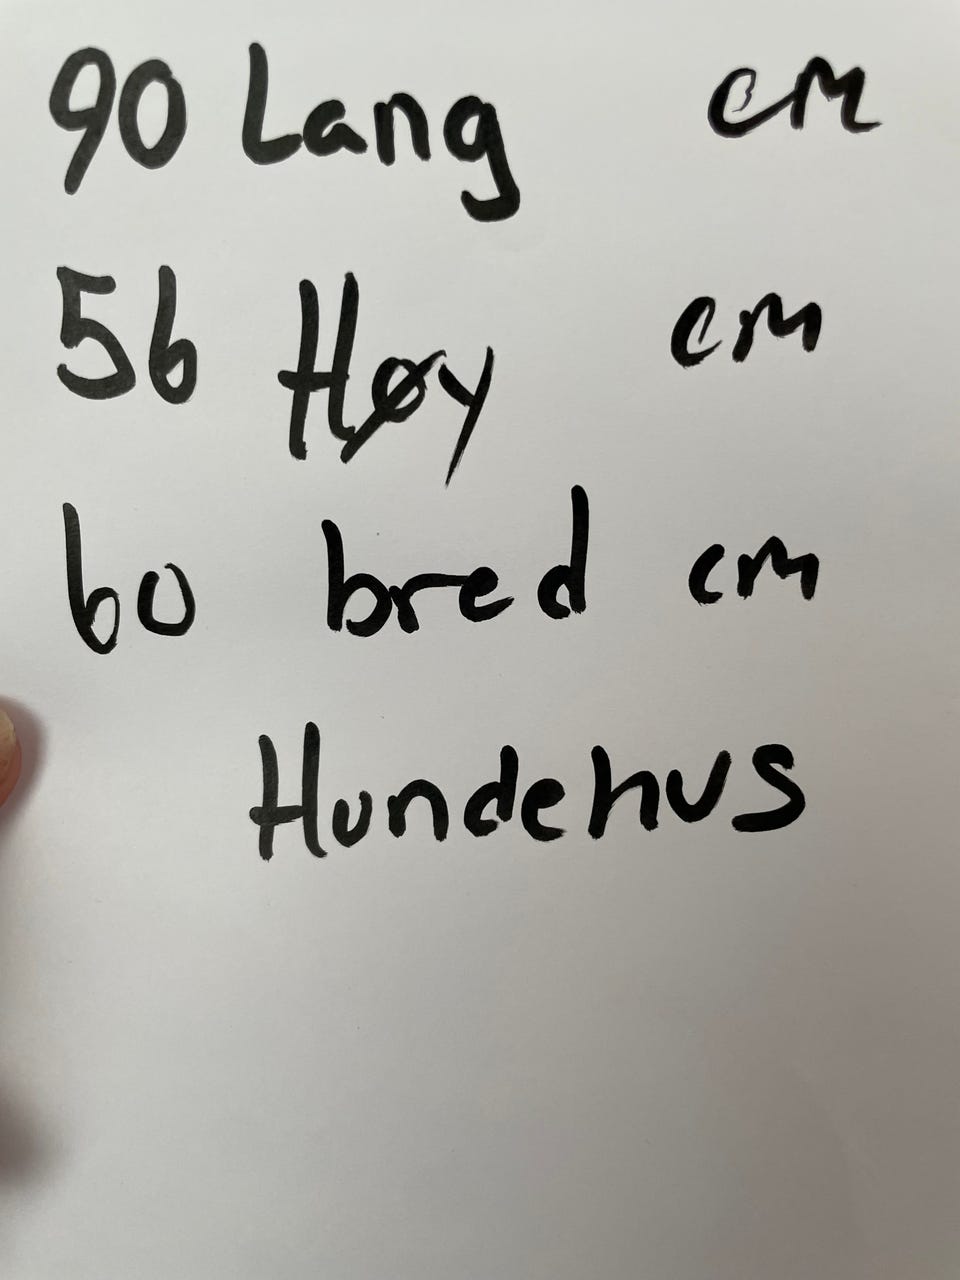 90 Lang cm
56 Høy cm
60 bred cm
Hundehus